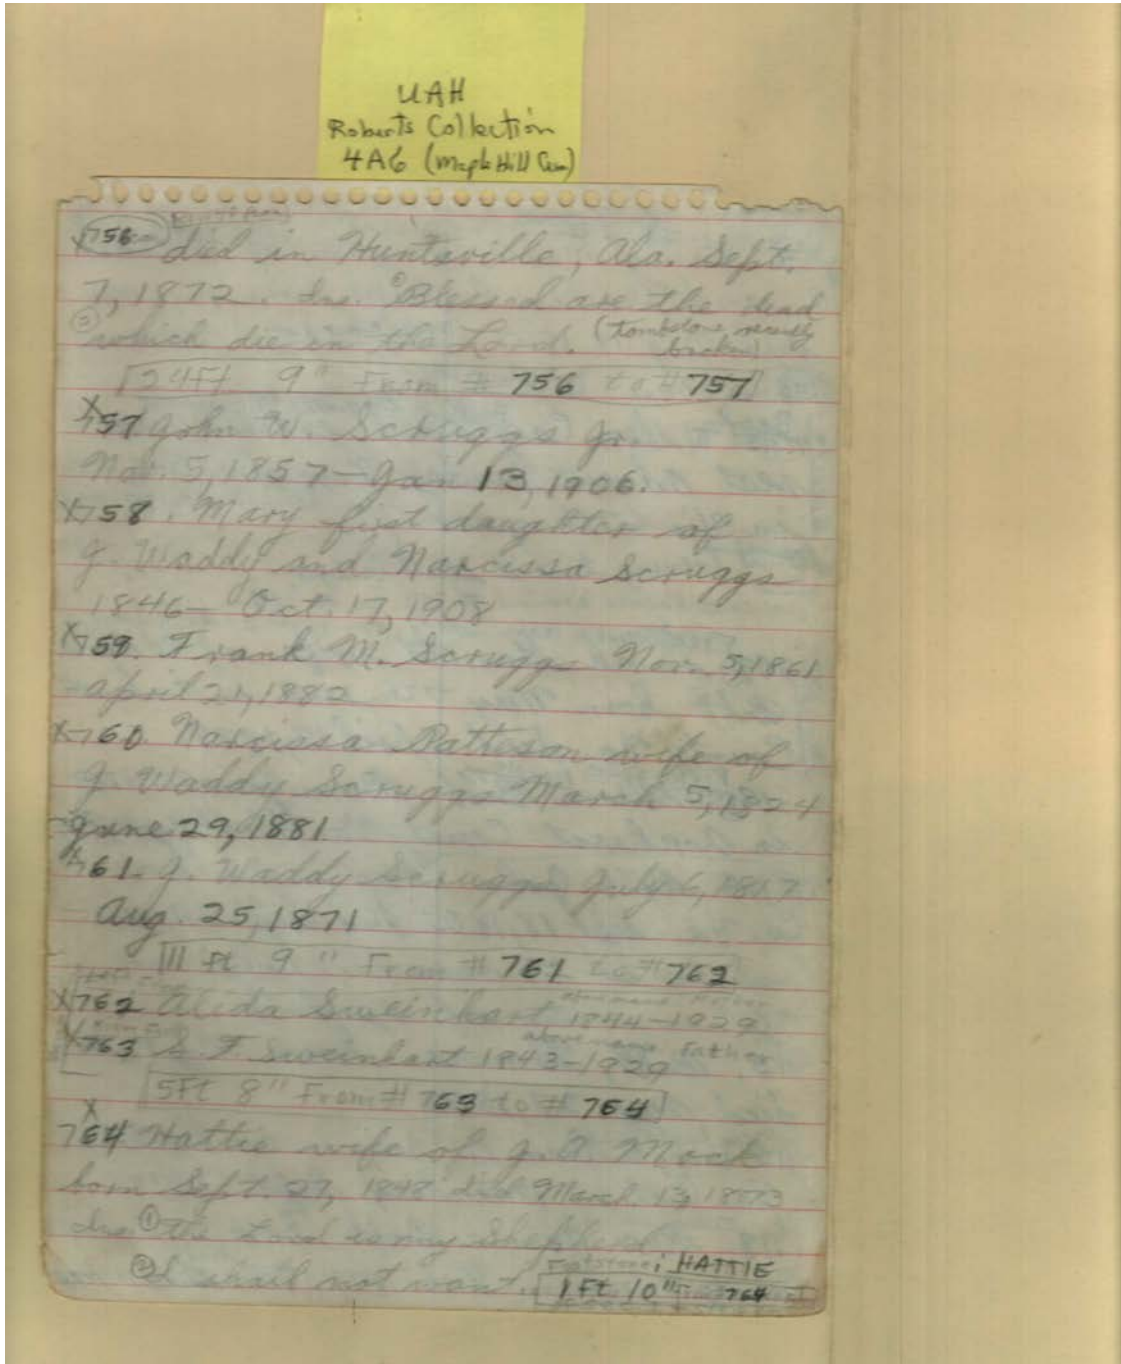 UAH
Roberts Collection
4A6 (Maple Hill Cem)
X756 died in Huntsville, Ala. Sept.
7, 1872. Ins. ① Blessed are the dead
② which die in the Lord. (tombstone recently
broken)
24 Ft. 9" From # 756 to # 757
X757 John W. Scruggs Jr.
Nov. 5, 1857 — Jan 13, 1906.
X758. Mary first daughter of
J. Waddy and Narcissa Scruggs
1846 — Oct. 17, 1908
X759. Frank M. Scruggs Nov. 5, 1861
- April 21, 1882
X760. Narcissa Pattison wife of
J. Waddy Scruggs March 5, 1824
- June 29, 1881
X761. J. Waddy Scruggs July 6, 1817
- Aug. 25, 1871
11 ft 9" From # 761 to # 762
above name Mother
X762 Alida Sweinhart 1844-1929
above name Father
X763 S. F. Sweinhart 1843-1929
5Ft 8" From # 763 to # 764
X
764 Hattie wife of J. A. Mock
born Sept. 27, 1848 died March 13, 1873
Ins. ① The Lord is my Shepherd
② I shall not want.
Footstone: HATTIE
1 Ft 10" 764